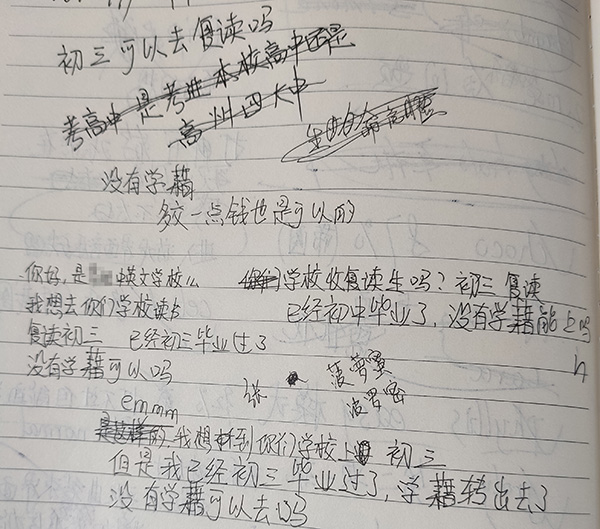 初三可以去复读吗
考高中是考进本校高中还是
高州四大中
没有学藉
多交一点钱也是可以的
你好,是 英文学校么
我想去你们学校读书
复读初三 已经初三毕业过了
没有学藉可以吗
学校收复读生吗?初三复读
已经初中毕业了,没有学藉能上吗
张 菠萝
波罗密
emmm
是这样的 我想来到你们学校上 初三
但是我已经初三毕业过了,学藉转出去了
没有学藉可以去吗